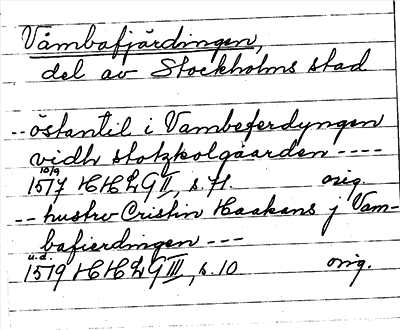 Våmbafjärdingen,
del av Stockholms stad
-- östantil i Vambeferdyngen
vidh stotzkolgåarden ----
10/9
1517 HHLG II, s. 71. orig.
-- hustrv Cristin Haakans j Vam-
bafierdingen ---
u.d.
1519 HHLG III, s. 10 orig.